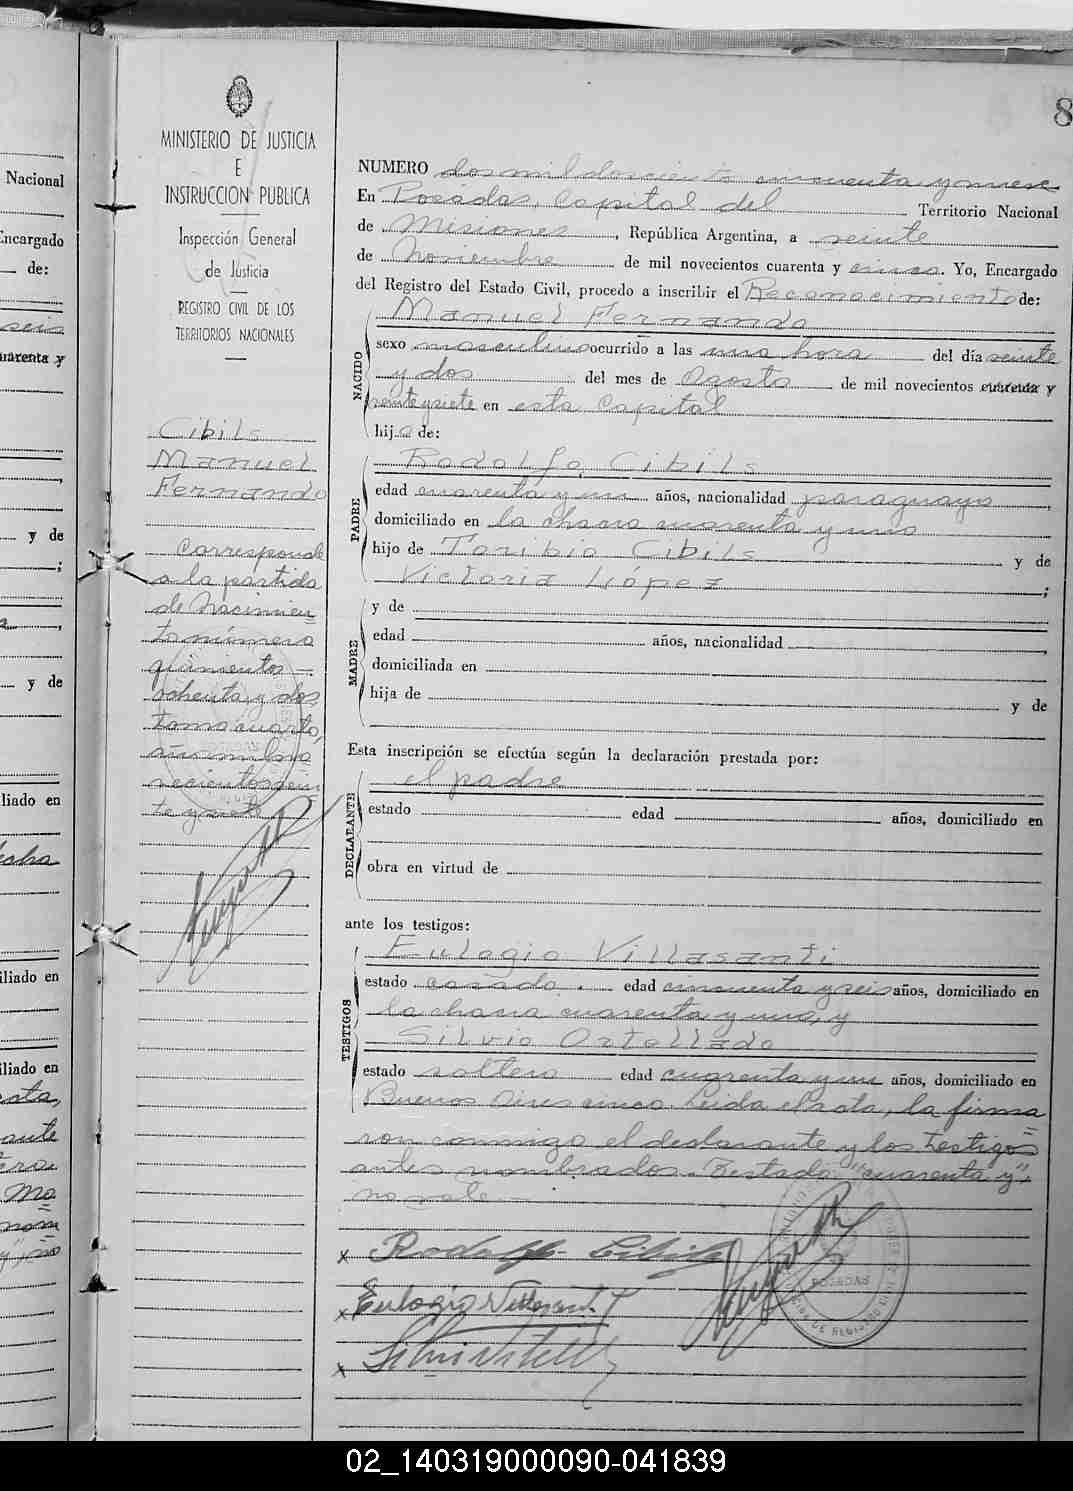 8
MINISTERIO DE JUSTICIA
E
INSTRUCCION PUBLICA
Inspección General
de Justicia
REGISTRO CIVIL DE LOS
TERRITORIOS NACIONALES
Cibils
Manuel
Fernando
Corresponde
a la partida
de Nacimien
to número
quinientos
ochenta y dos
tomo cuarto,
año mil no
vecientos vein
te y siete
NUMERO dos mil doscientos cincuenta y nueve
En Posadas, Capital del Territorio Nacional
de Misiones, República Argentina, a veinte
de Noviembre de mil novecientos cuarenta y cinco. Yo, Encargado
del Registro del Estado Civil, procedo a inscribir el Reconocimiento de:
NACIDO
Manuel Fernando
sexo masculino ocurrido a las una hora del día veinte
y dos del mes de Agosto de mil novecientos cuarenta y
veinte y siete en esta Capital
hijo de:
PADRE
Rodolfo Cibils
edad cuarenta y un años, nacionalidad paraguayo,
domiciliado en la chacra cuarenta y uno
hijo de Toribio Cibils y de
Victoria López;
MADRE
y de
edad años, nacionalidad,
domiciliada en
hija de y de
Esta inscripción se efectúa según la declaración prestada por:
DECLALANTE
el padre
estado edad años, domiciliado en
obra en virtud de
ante los testigos:
TESTIGOS
Eulogio Villasanti
estado casado. edad cincuenta y seis años, domiciliado en
la chacra cuarenta y uno, y
Silvio Ortellado
estado soltero edad cuarenta y un años, domiciliado en
Buenos Aires cinco. Leida el acta, la firma
ron conmigo el declarante y los testigos
antes nombrados. Testado "cuarenta y",
no vale.—
x Rodolfo Cibils
x Eulogio Villasanti
x
POSADAS
Nacional
Encargado
de:
seis
cuarenta y
y de
;
,
y de
liado en
iliado en
iliado en
02_140319000090-041839